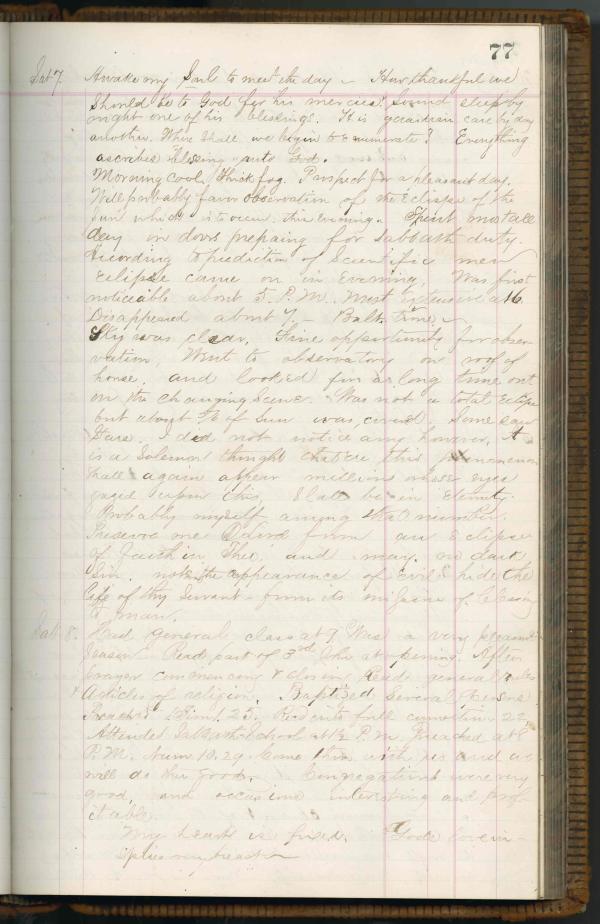 77
Sat 7. Awake my Soul to meet the day - How thankful we
should be to God for his mercies. Sound sleep by
night one of his blessings. His guardian care by day
another. Where shall we begin to enumerate? Everything
ascribes blessing unto God.
Morning cool, thick fog. Prospect for a pleasant day,
Will probably favor observation of the Eclipse of the
Sun which is to occur this evening. Spent most all
day in doors prepaing for Sabbath duty.
According to prediction of Scientific men
Eclipse came on in Evening, Was first
noticeable about 5. P.M. Most Extensive at 6.
Disappeared about 7. - Balt. time. -
Sky was clear. Fine oppertunity for obser-
vation, Went to observatory on roof of
house, and looked for a long time out
on the changing scene. Was not a total Eclipse
but about of Sun was coverd, Some saw
Stars. I did not notice any however. It
is a Solemn thought that ere this phenomenon
shall again appear millions whose eyes
gazed upon this, Shall be in Eternity.
Probably myself among the number.
Preserve me O Lord from an Eclipse
of faith in Thee, and may no dark
Sin, nor the appearance of Evil hide the
life of thy Servant from its mission of blessing
to man.
Sab 8. Had general class at 9 Was a very pleasant
Season - Read part of 3rd at opening. After
prayer commencing & closing Read general rules
& Articles of religion. Baptised Several persons
Preached 1 25. Resients full 22
Attended Sabbath School at P.M. Preached at 8
P.M. Num 10.29. Come thou with us and we
will do thee good. Congregations were very
good, and occasions interesting and prof-
itable.
My heart is fixed. God's love in-
spires my breast -